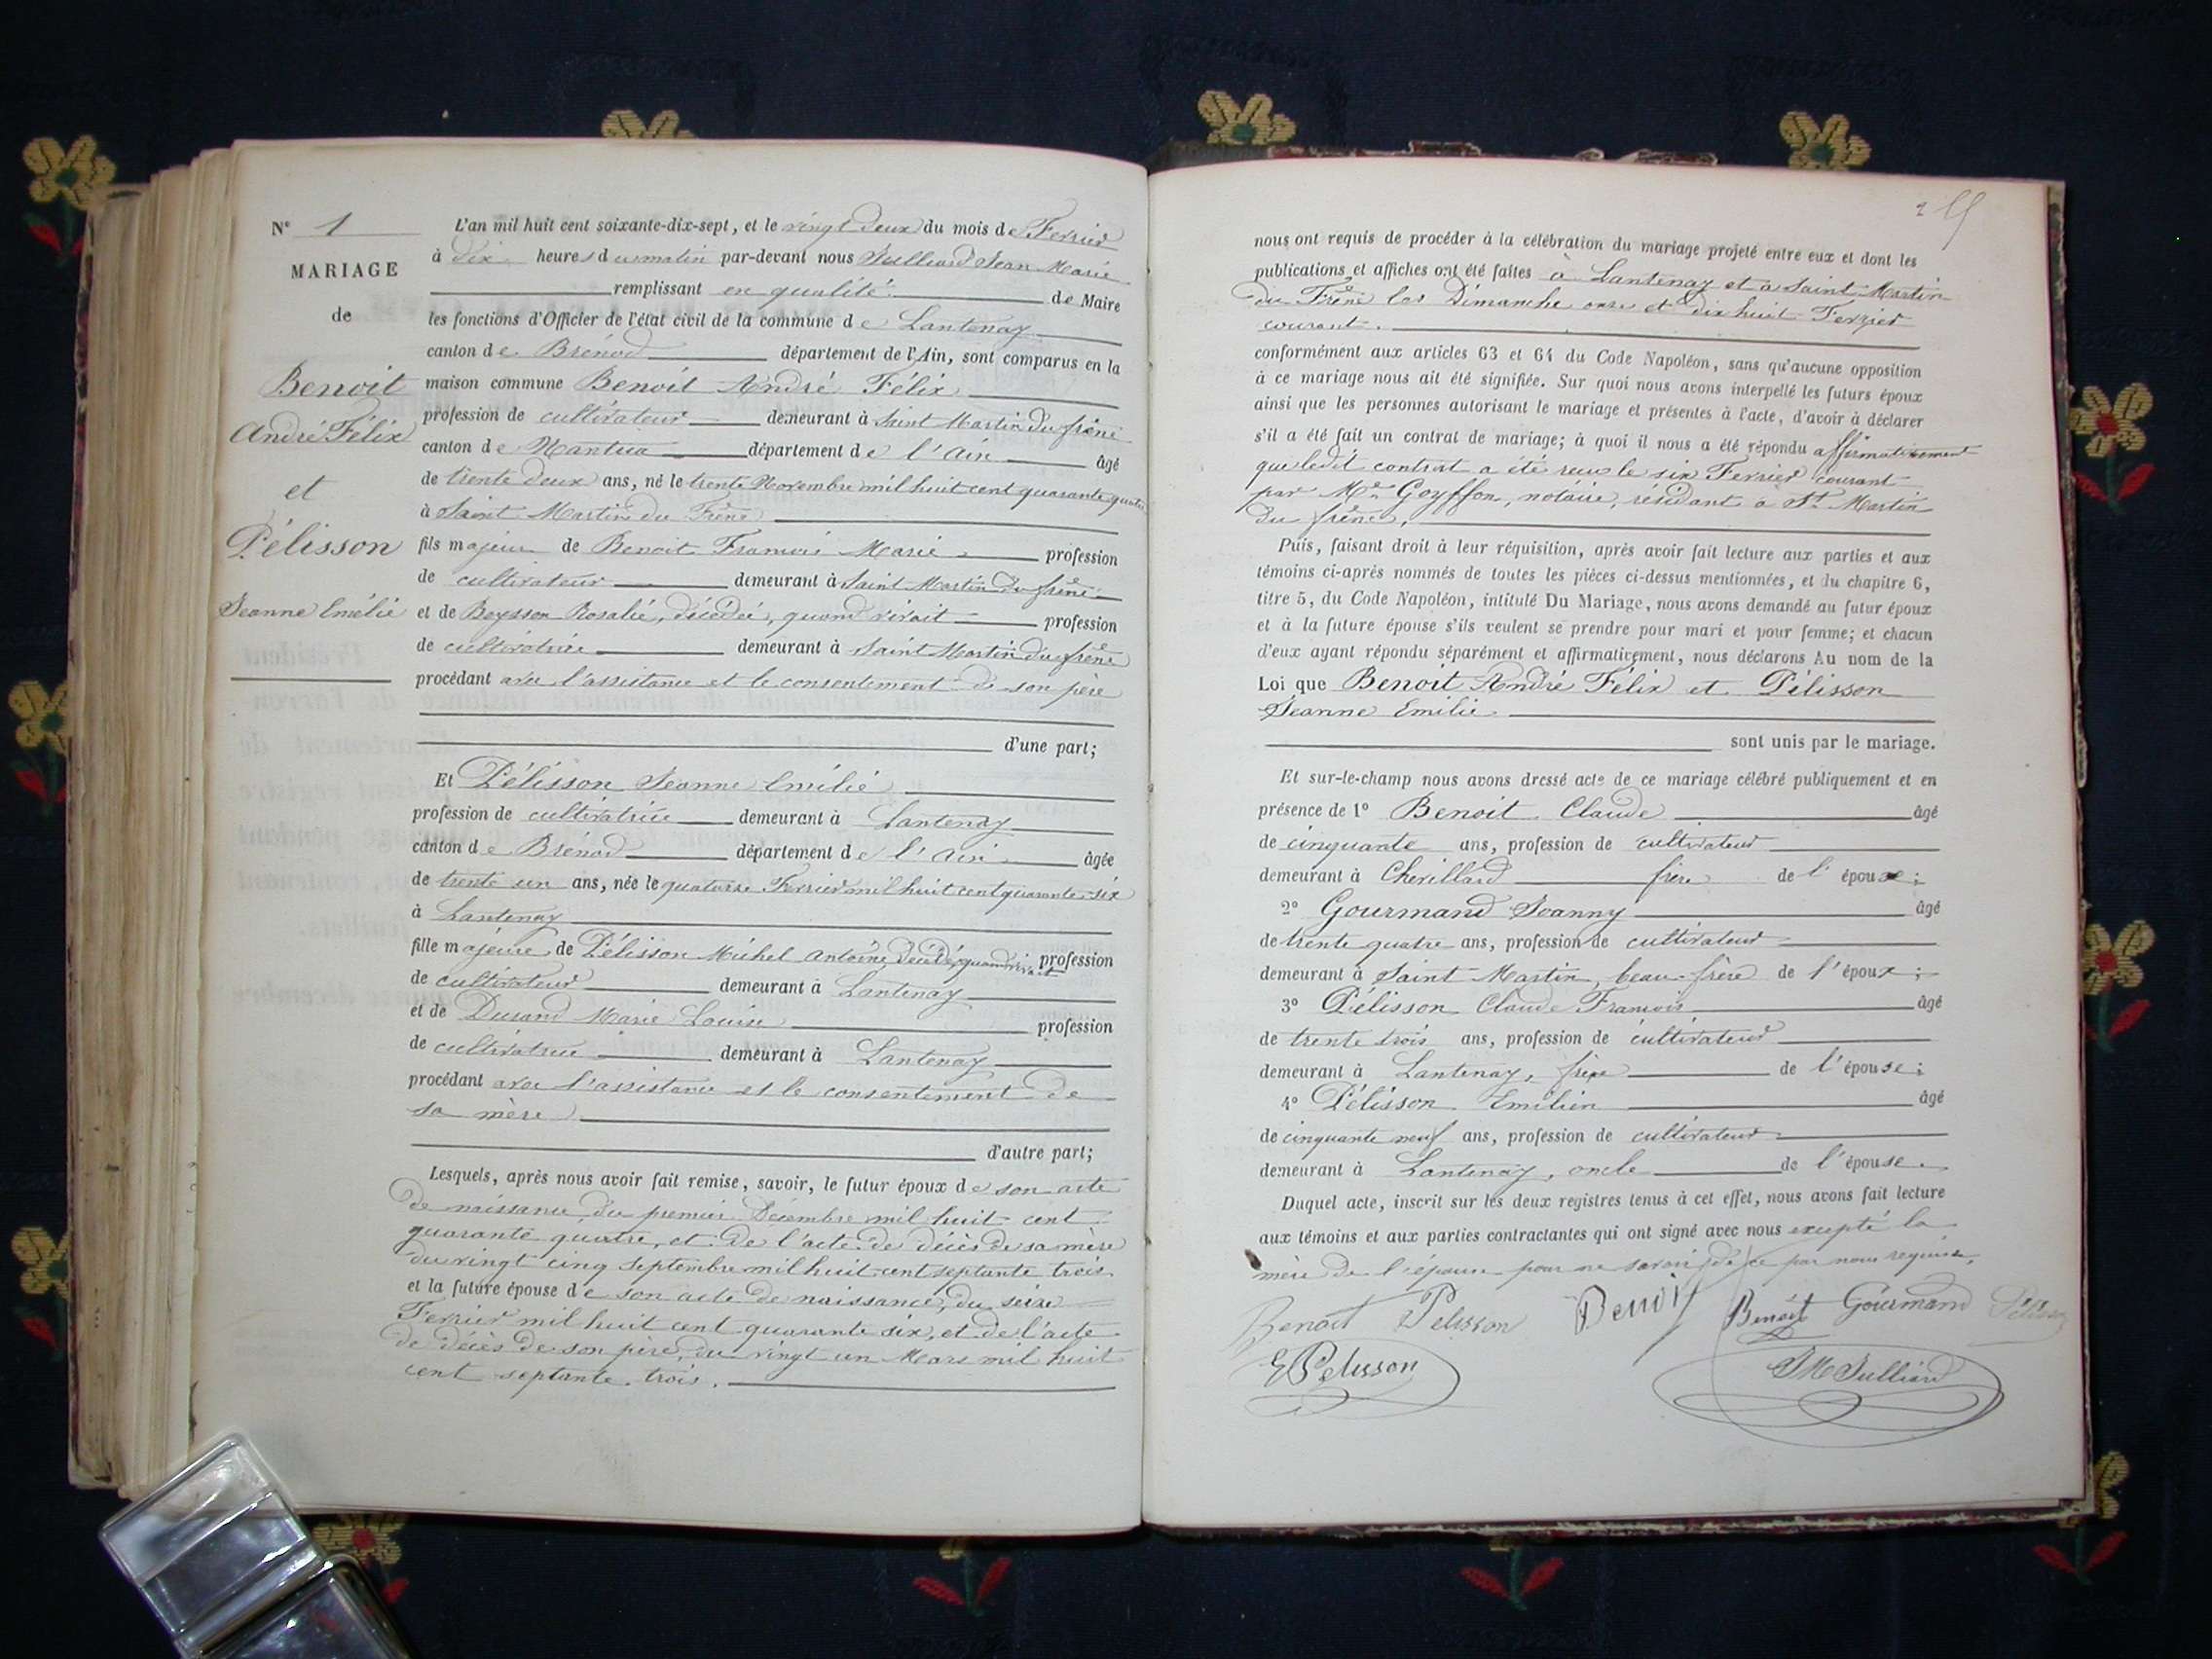 N° 1
MARIAGE
de
Benoit
André Félix
et
Pélisson
Jeanne Emélie
L'an mil huit cent soixante-dix-sept, et le vingt deux du mois de Fevrier
à dix heures du matin par-devant nous Julliard Jean Marie
remplissant en qualité de Maire
les fonctions d'Officier de l'état civil de la commune de Lantenay
canton de Brénod département de l'Ain, sont comparus en la
maison commune Benoit André Félix
profession de cultivateur demeurant à Saint Martin du frêne
canton de Nantua département de l'Ain âgé
de trente deux ans, né le trente Novembre mil huit cent quarante quatre
à Saint Martin du Frêne
fils majeur de Benoit François Marie profession
de cultivateur demeurant à Saint Martin du frêne
et de Beysson Rosalie, décédée, quand vivait profession
de cultivatrice demeurant à Saint Martin du frêne
procédant avec l'assistance et le consentement de son père
d'une part;
Et Pélisson Jeanne Emélie
profession de cultivatrice demeurant à Lantenay
canton de Brénod département de l'Ain âgée
de trente un ans, née le quatorze Fevrier mil huit cent quarante-six
à Lantenay
fille majeure de Pélisson Michel Antoine, décédé, quand vivait profession
de cultivateur demeurant à Lantenay
et de Durand Marie Louise profession
de cultivatrice demeurant à Lantenay
procédant avec l'assistance et le consentement de
sa mère
d'autre part;
Lesquels, après nous avoir fait remise, savoir, le futur époux de son acte
de naissance, du premier Décembre mil huit cent
quarante quatre, et de l'acte de décès de sa mère
du vingt cinq Septembre mil huit cent septante trois
et la future épouse de son acte de naissance, du seize
Fevrier mil huit cent quarante six, et de l'acte
de décès de son père, du vingt un Mars mil huit
cent septante trois.
2
nous ont requis de procéder à la célébration du mariage projeté entre eux et dont les
publications et affiches ont été faites à Lantenay et à Saint Martin
du Frêne les Dimanche onze et dix huit Fevrier
courant.
conformément aux articles 63 et 64 du Code Napoléon, sans qu'aucune opposition
à ce mariage nous ait été signifiée. Sur quoi nous avons interpellé les futurs époux
ainsi que les personnes autorisant le mariage et présentes à l'acte, d'avoir à déclarer
s'il a été fait un contrat de mariage; à quoi il nous a été répondu affirmativement
que ledit contrat a été reçu le six Fevrier courant
par Me Goyffon, notaire, résidant à St Martin
du frêne,
Puis, faisant droit à leur réquisition, après avoir fait lecture aux parties et aux
témoins ci-après nommés de toutes les pièces ci-dessus mentionnées, et du chapitre 6,
titre 5, du Code Napoléon, intitulé Du Mariage, nous avons demandé au futur époux
et à la future épouse s'ils veulent se prendre pour mari et pour femme; et chacun
d'eux ayant répondu séparément et affirmativement, nous déclarons Au nom de la
Loi que Benoit André Félix et Pélisson
Jeanne Emilie
sont unis par le mariage.
Et sur-le-champ nous avons dressé acte de ce mariage célébré publiquement et en
présence de 1° Benoit Claude âgé
de cinquante ans, profession de cultivateur
demeurant à Chevillard frère de l'époux;
2° Gourmand Joanny âgé
de trente quatre ans, profession de cultivateur
demeurant à Saint Martin, beau-frère de l'époux;
3° Pélisson Claude François âgé
de trente trois ans, profession de cultivateur
demeurant à Lantenay, frère de l'épouse;
4° Pélisson Emilien âgé
de cinquante neuf ans, profession de cultivateur
demeurant à Lantenay, oncle de l'épouse.
Duquel acte, inscrit sur les deux registres tenus à cet effet, nous avons fait lecture
aux témoins et aux parties contractantes qui ont signé avec nous excepté la
mère de l'épouse pour ne savoir, de ce par nous requise.
Benoit Pelisson Benoit Benoit Gourmand Pélisson
E Pelisson JM Julliard